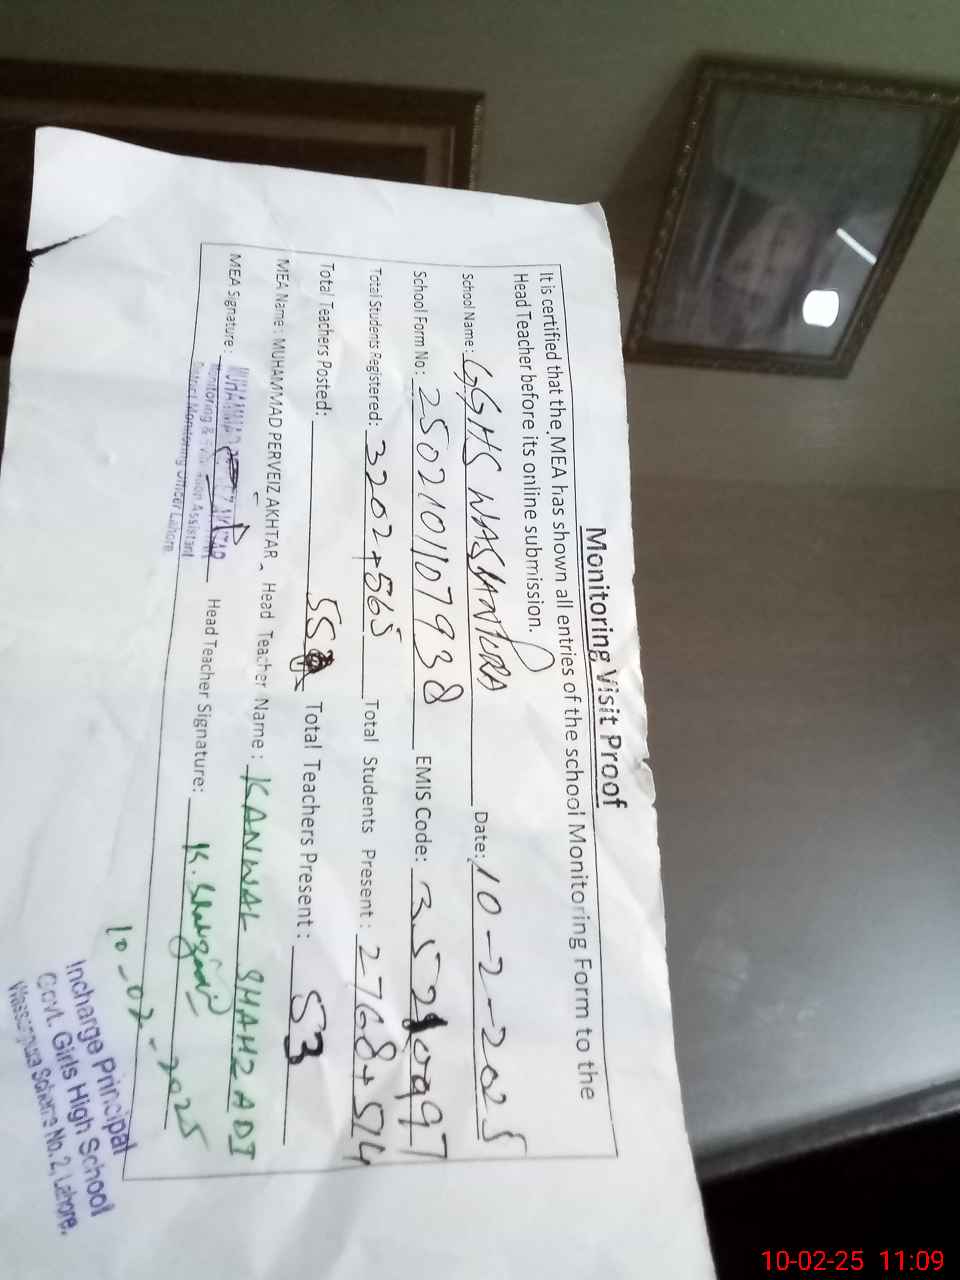 Monitoring Visit Proof
It is certified that the MEA has shown all entries of the school Monitoring Form to the
Head Teacher before its online submission.
School Name: GGHS WASSANPURA Date: 10-2-2025
School Form No: 2502101107938 EMIS Code: 35210997
Total Students Registered: 3202+565 Total Students Present: 2768+514
Total Teachers Posted: 55 Total Teachers Present: 53
MEA Name: MUHAMMAD PERVEIZ AKHTAR Head Teacher Name: KANWAL SHAHZADI
MEA Signature: MUHAMMAD Head Teacher Signature: K. Shahzadi
Monitoring & Assistant
District Monitoring Officer Lahore
10-02-2025
Incharge Principal
Govt. Girls High School
Wassanpura Scheme No. 2, Lahore.
10-02-25 11:09